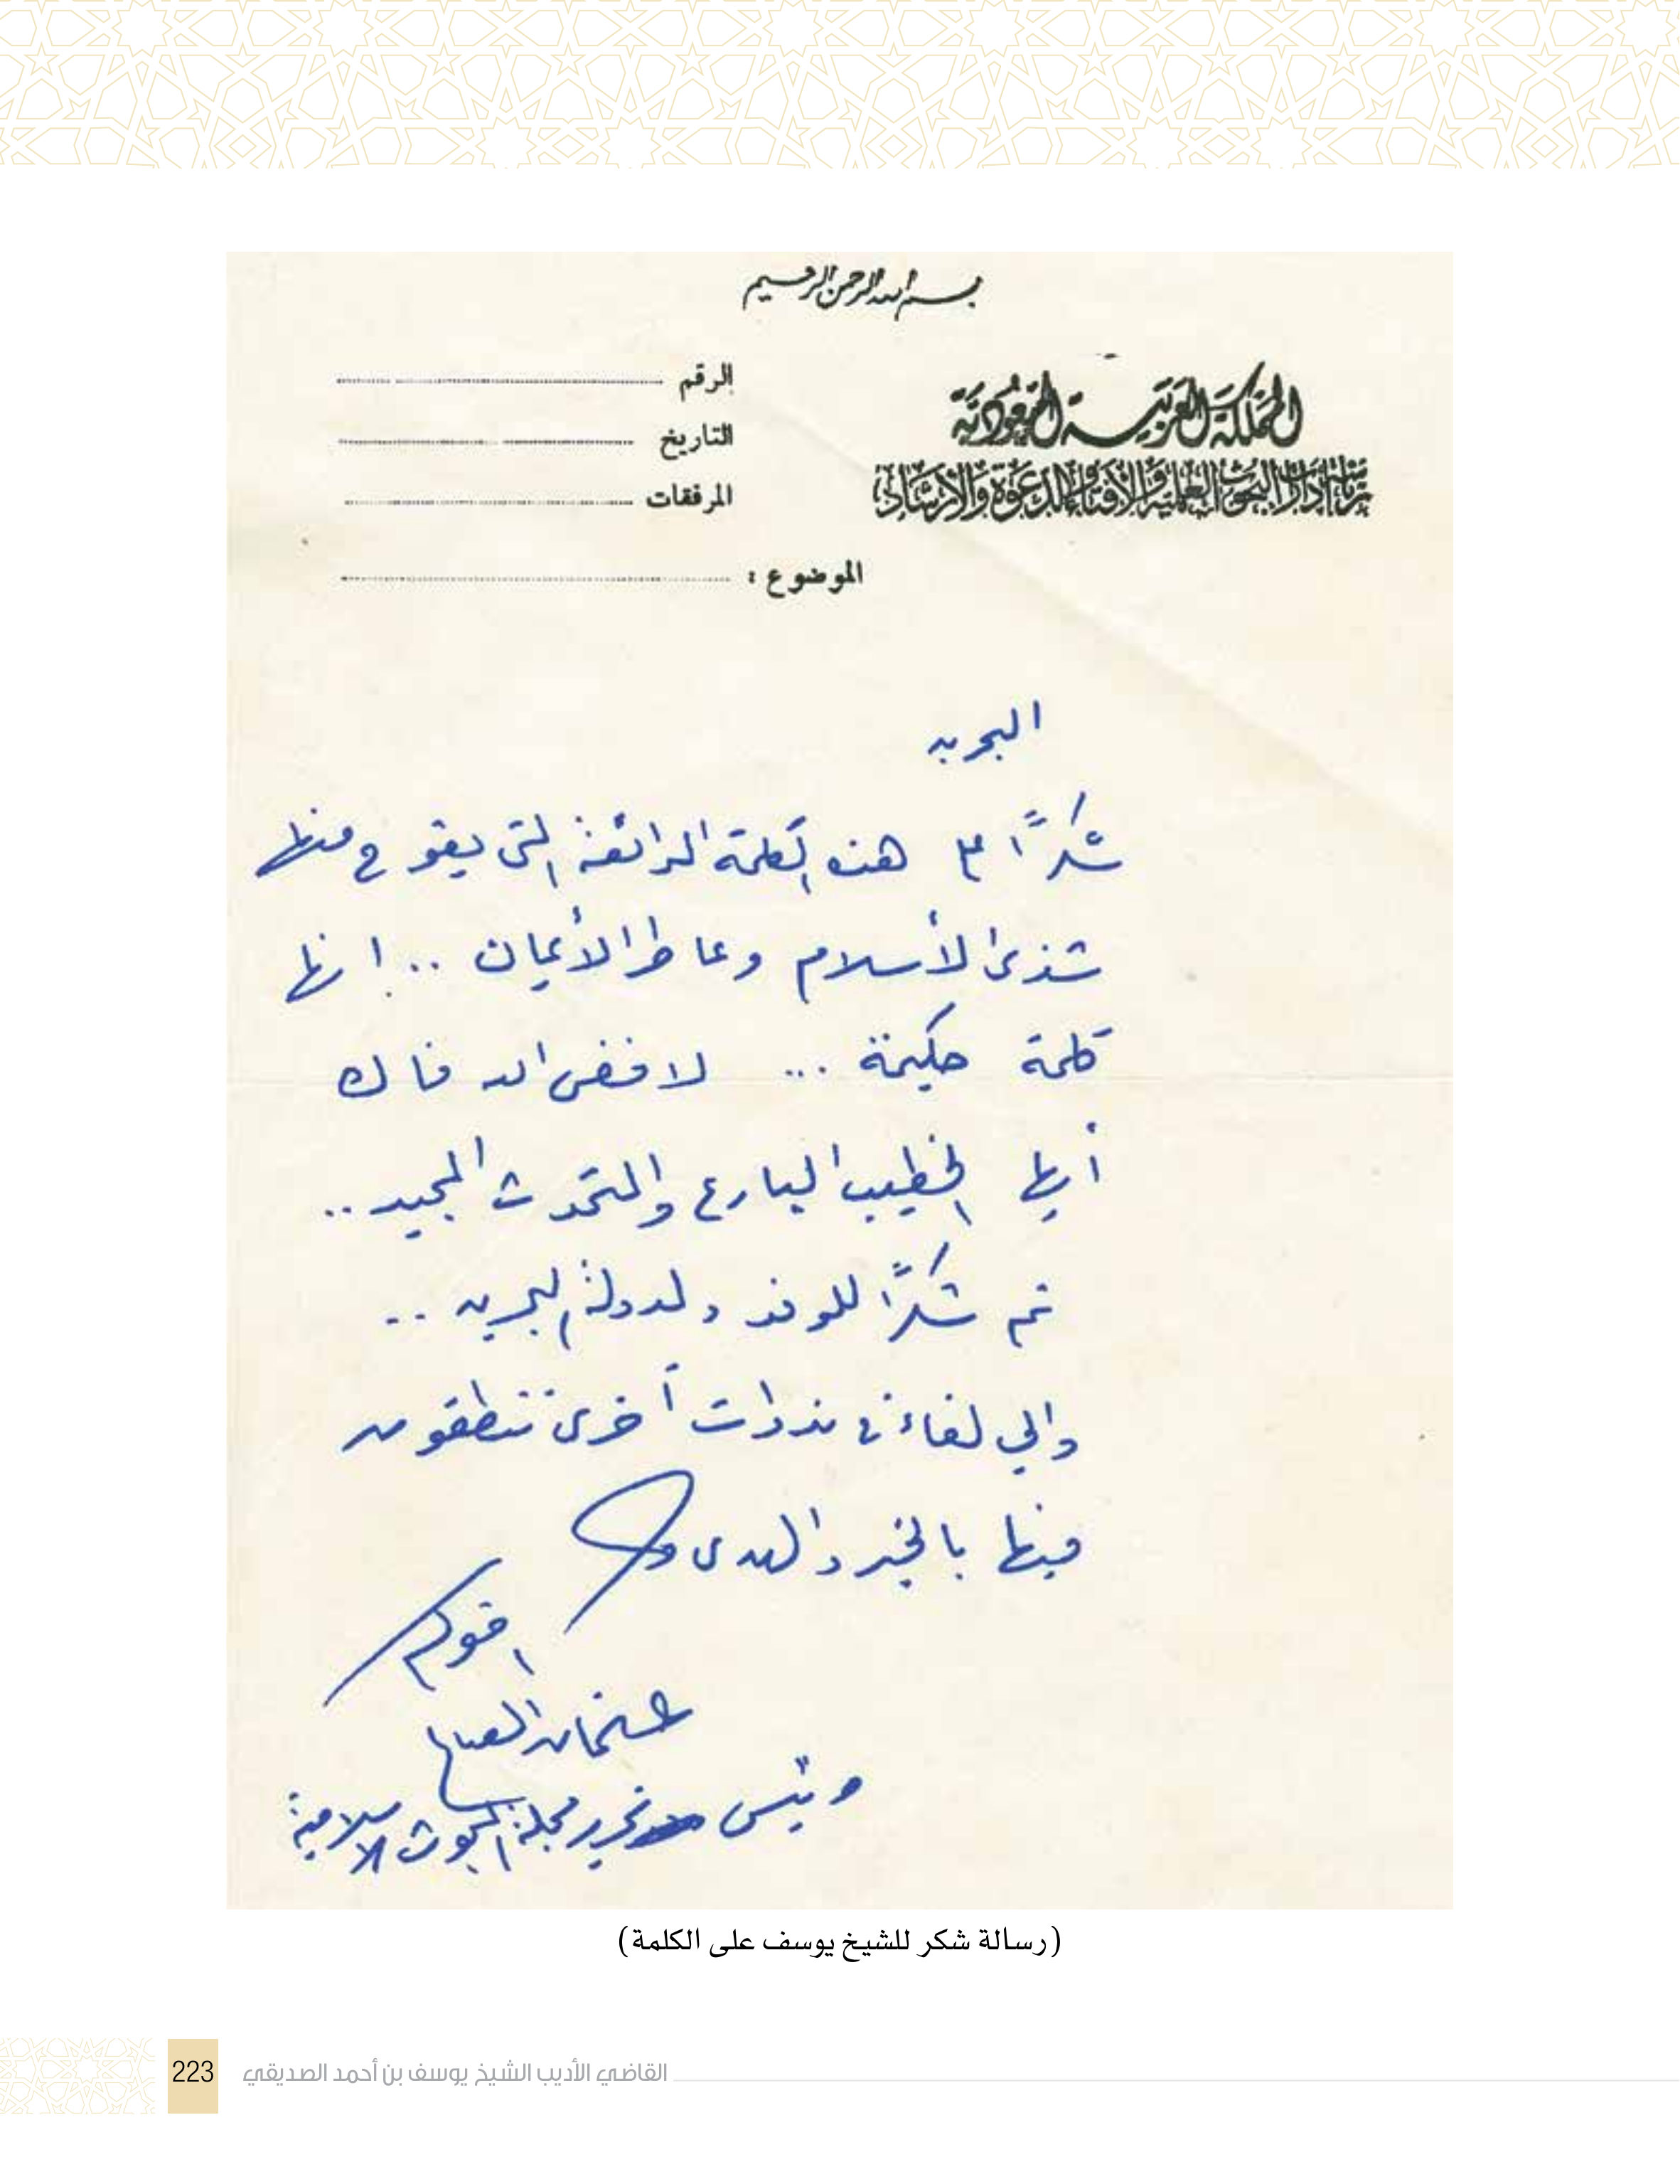 بسم الله الرحمن الرحيم
المملكة العربية السعودية
رئاسة إدارات البحوث العلمية والإفتاء والدعوة والإرشاد
الرقم
التاريخ
المرفقات
الموضوع :
البحرين
شكرًا على هذه الكلمة الرائعة التي يفوح منها
شذى الأسلام وعاطر الأيمان .. انها
كلمة حكيمة ... لا فض الله فاك
أيها الخطيب البارع والمتحدث المجيد ..
ثم شكرًا للوفد ولدولة البحرين ..
والى لقاء في ندوات أخرى تنطقون
فيها بالخير والهدى
اخوكم
عثمان الصالح
رئيس تحرير مجلة البحوث الاسلامية
(رسالة شكر للشيخ يوسف على الكلمة)
223 القاضي الأديب الشيخ يوسف بن أحمد الصديقي